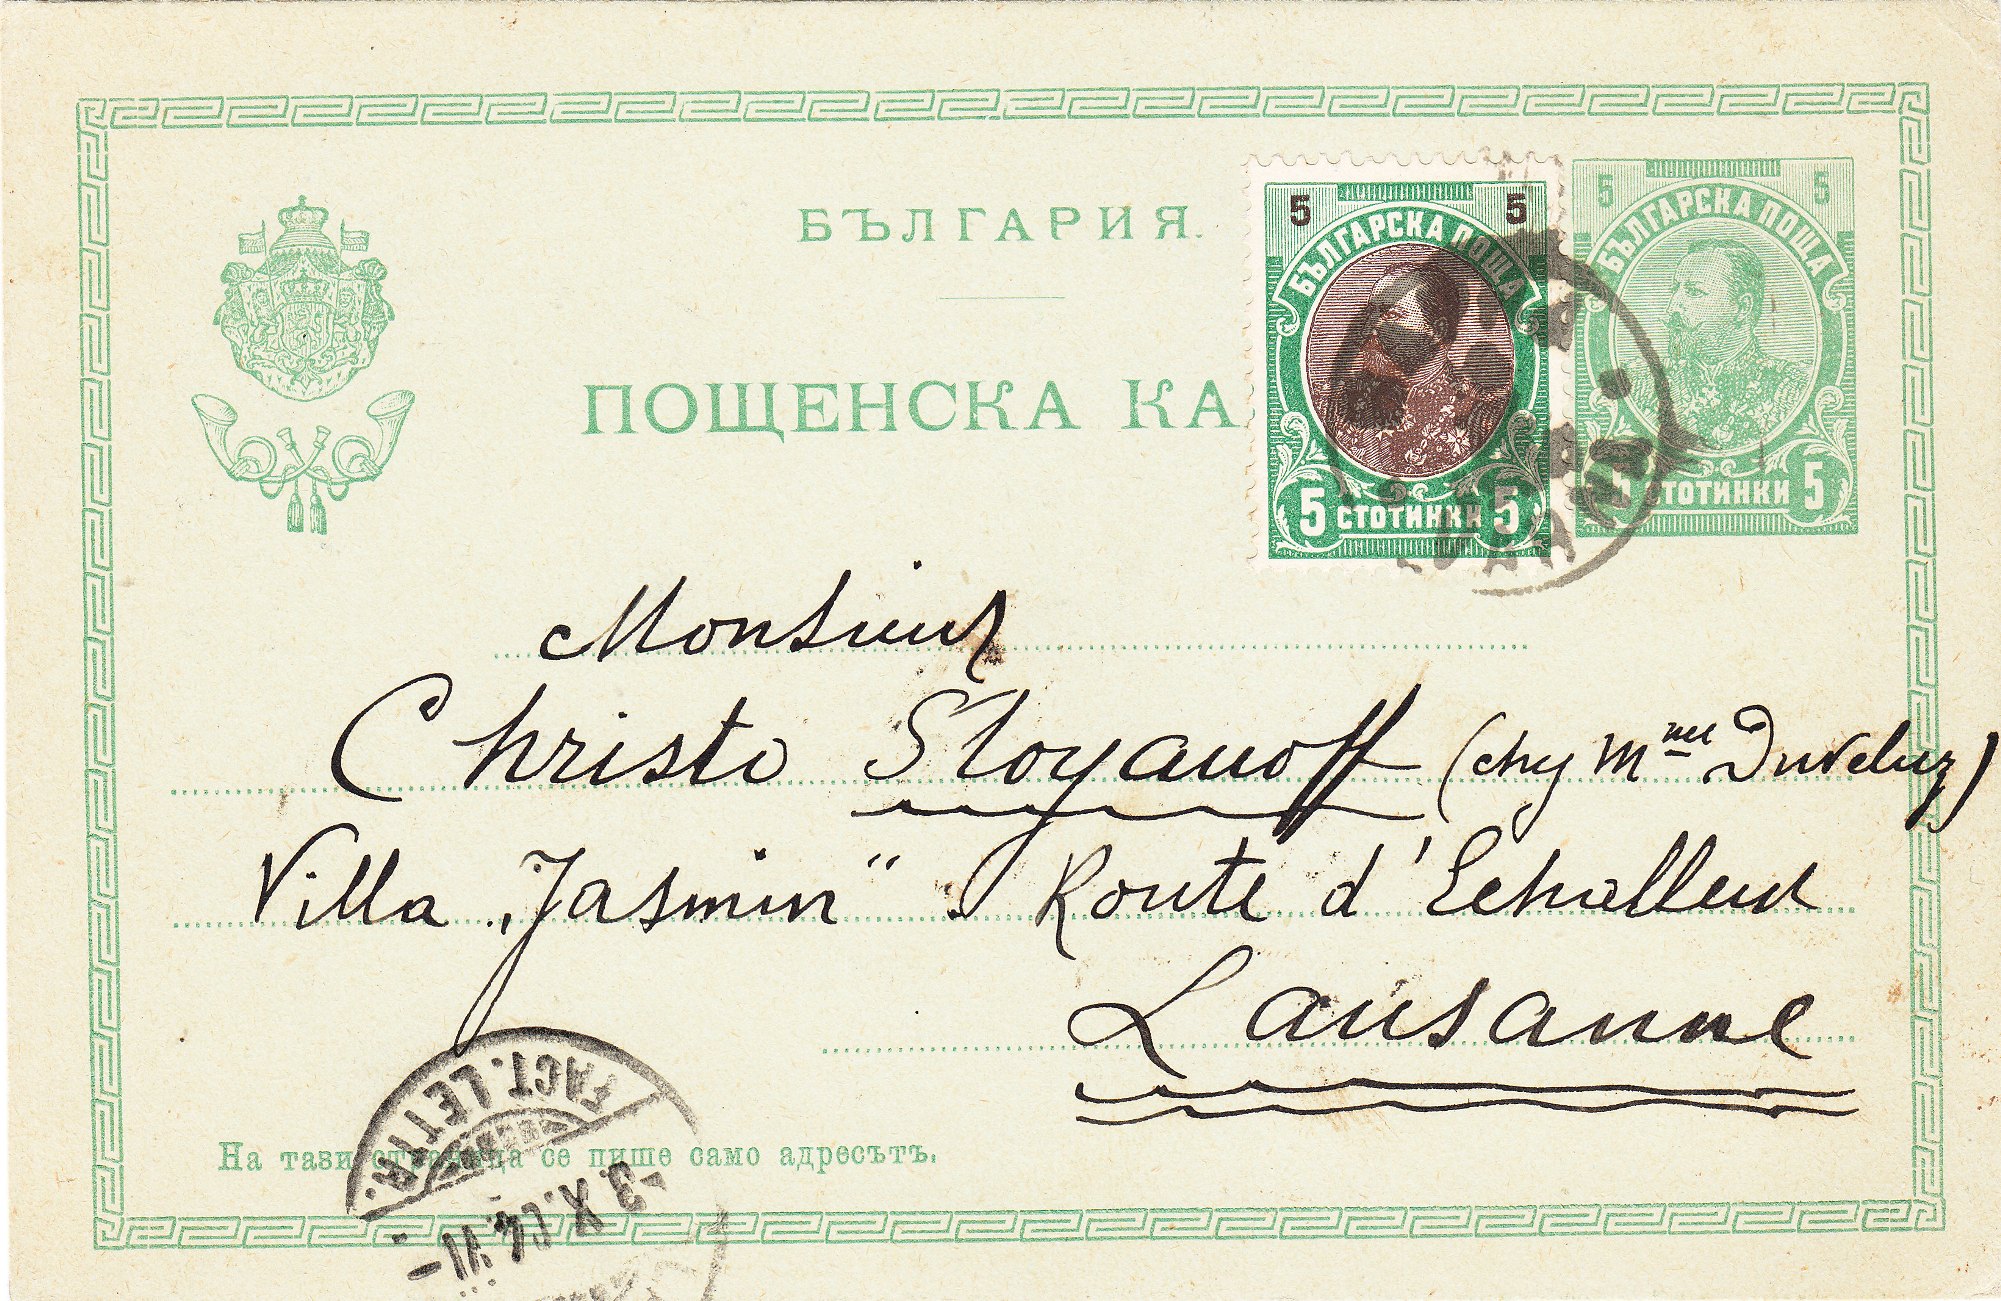 БЪЛГАРИЯ.
ПОЩЕНСКА КА
5 5
БЪЛГАРСКА ПОЩА
5 СТОТИНКИ 5
5 5
БЪЛГАРСКА ПОЩА
5 СТОТИНКИ 5
Monsieur
Christo Stoyanoff (chez Mme
Villa „Jasmin“ Route d'Echallens
Lausanne
На тази страница се пише само адресътъ.
FACT. LETTR.
-3.X.04.VI-